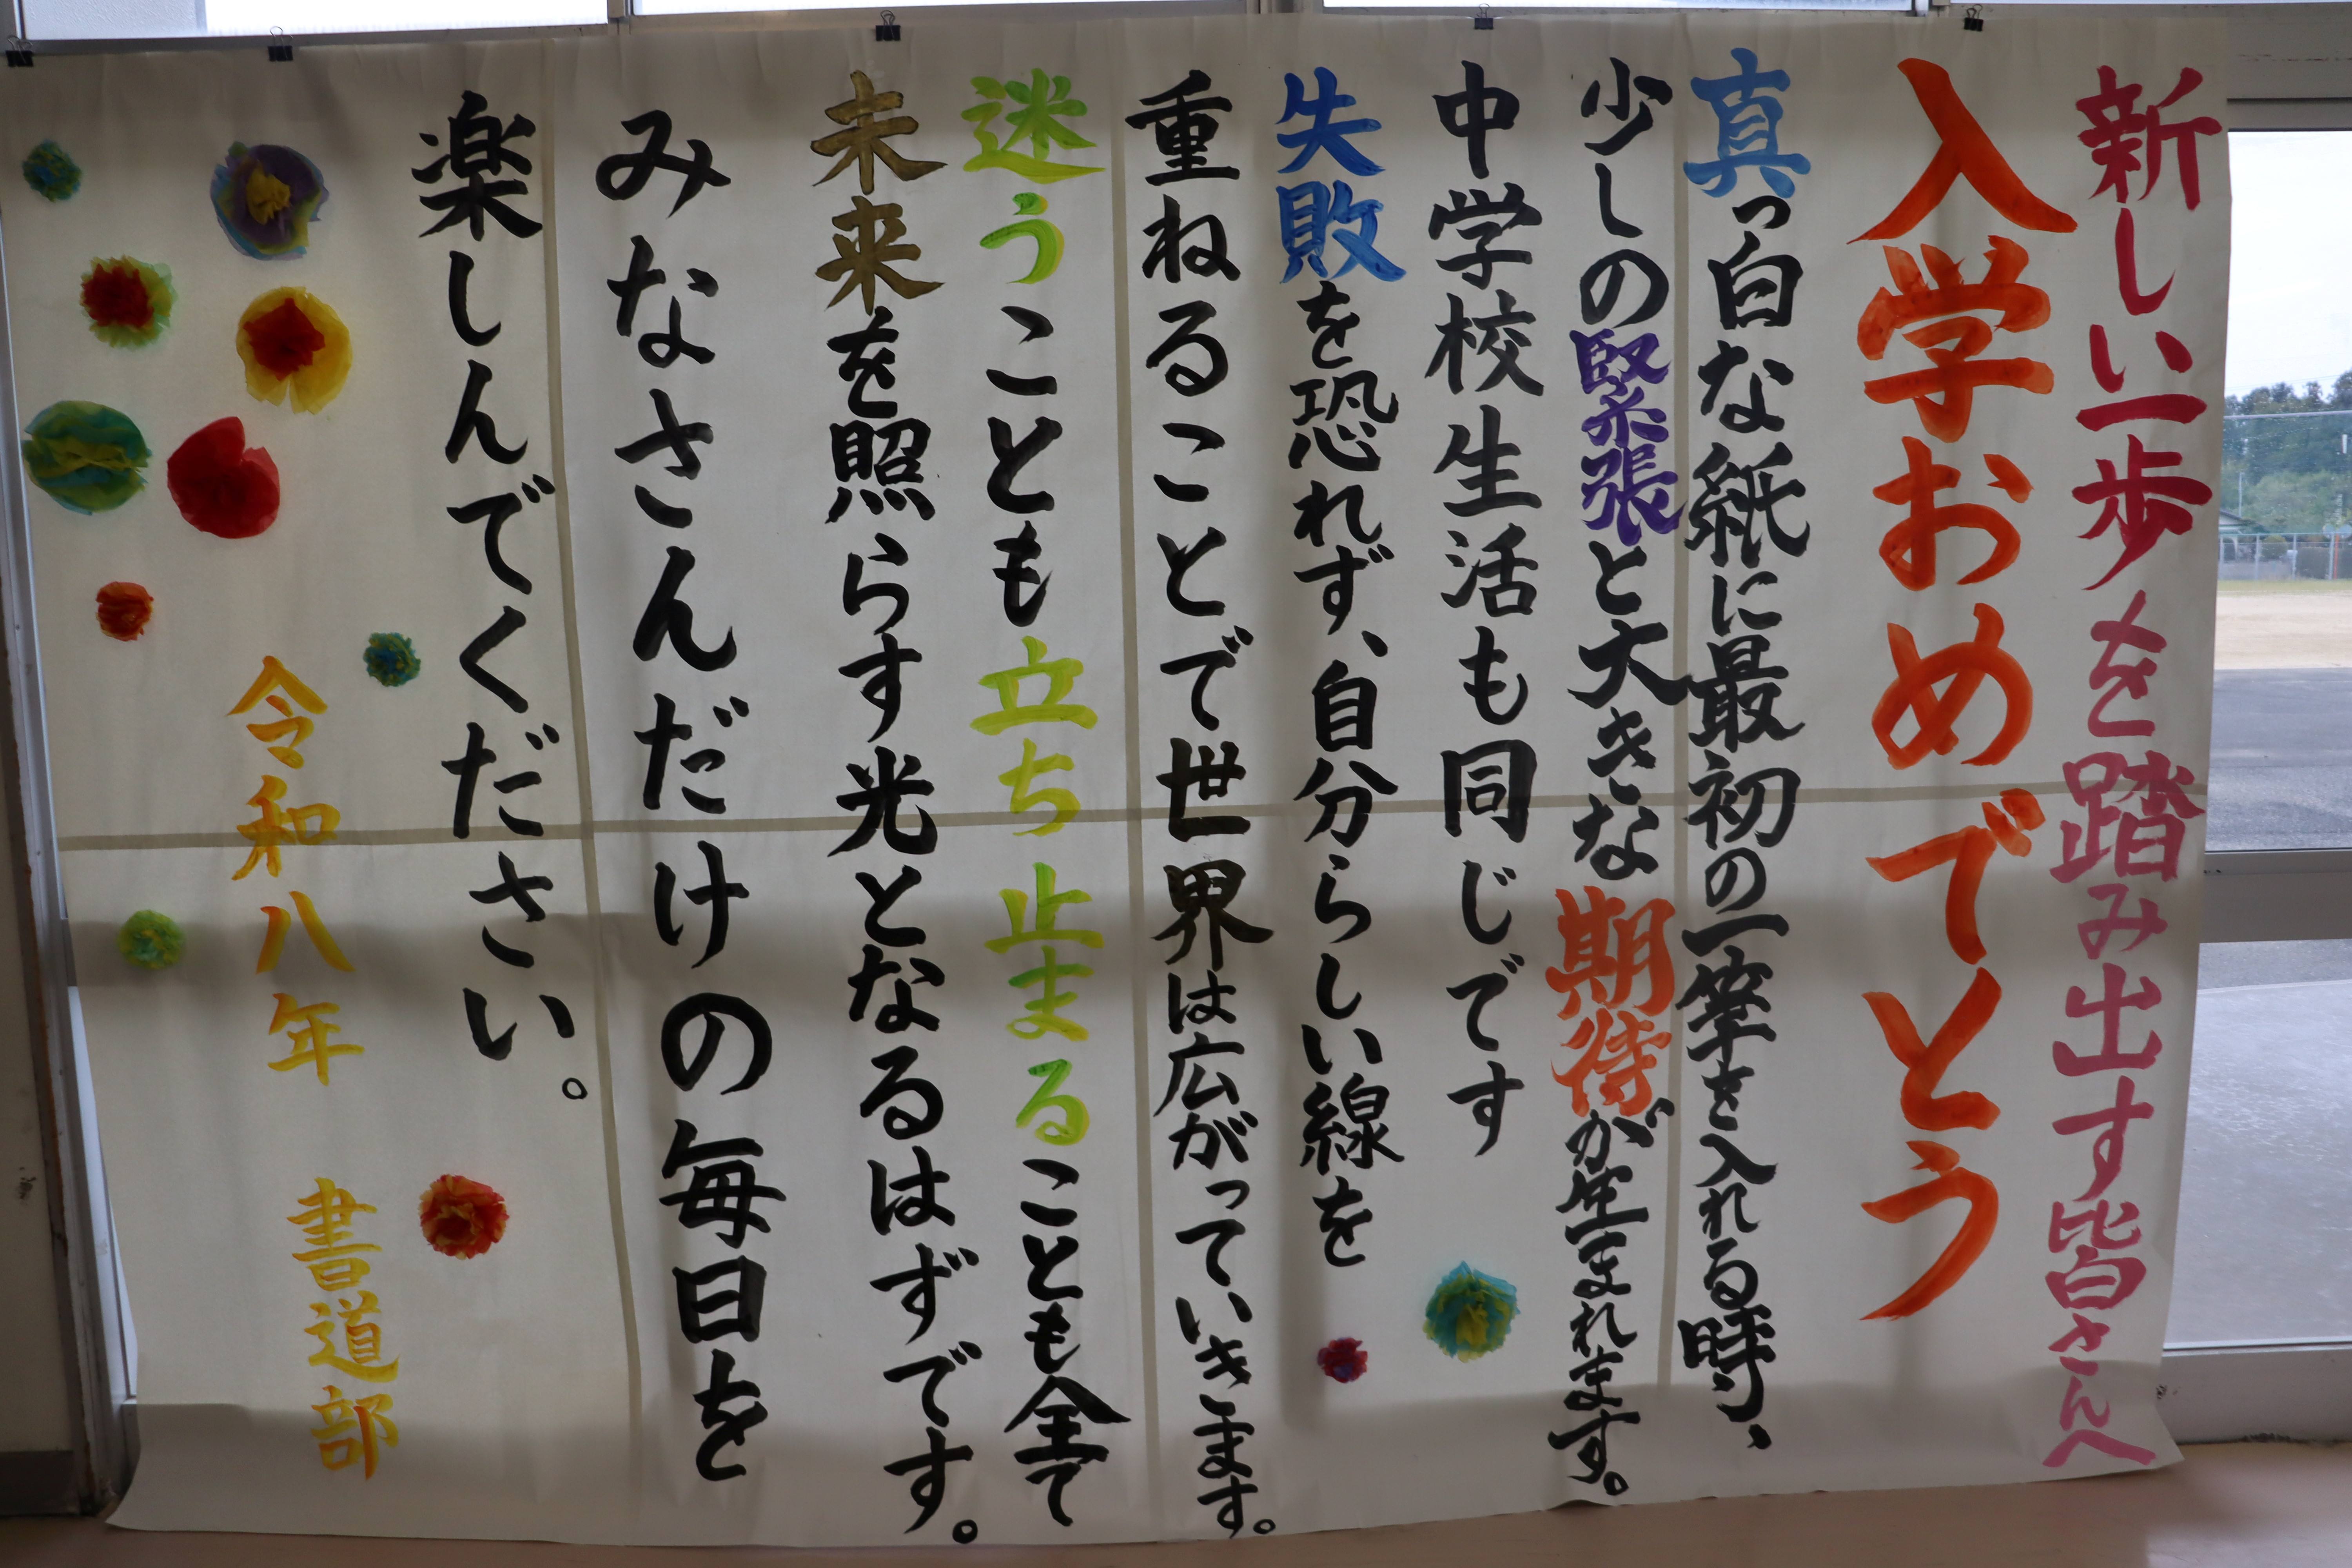 新しい一歩を踏み出す皆さんへ
入学おめでとう
真っ白な紙に最初の一筆を入れる時、
少しの緊張と大きな期待が生まれます。
中学校生活も同じです
失敗を恐れず、自分らしい線を
重ねることで世界は広がっていきます。
迷うことも立ち止まることも全て
未来を照らす光となるはずです。
みなさんだけの毎日を
楽しんでください。
令和八年 書道部